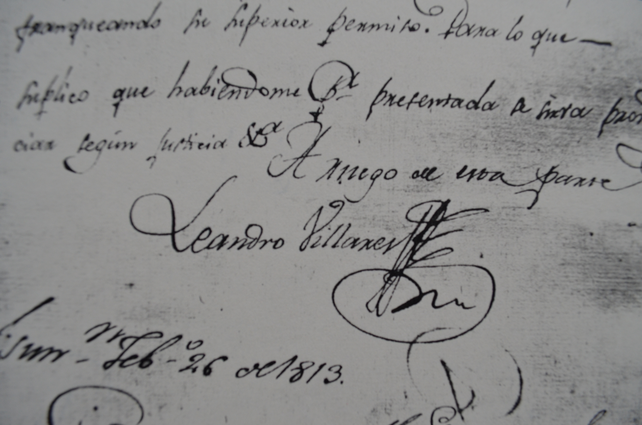 franqueando su superior permiso. Para lo que
suplico que habiendome Vª presentada se sirva pro
ciar según justicia &ª
A ruego de esta parte
Leandro Villares
Feb.º 26 de 1813.